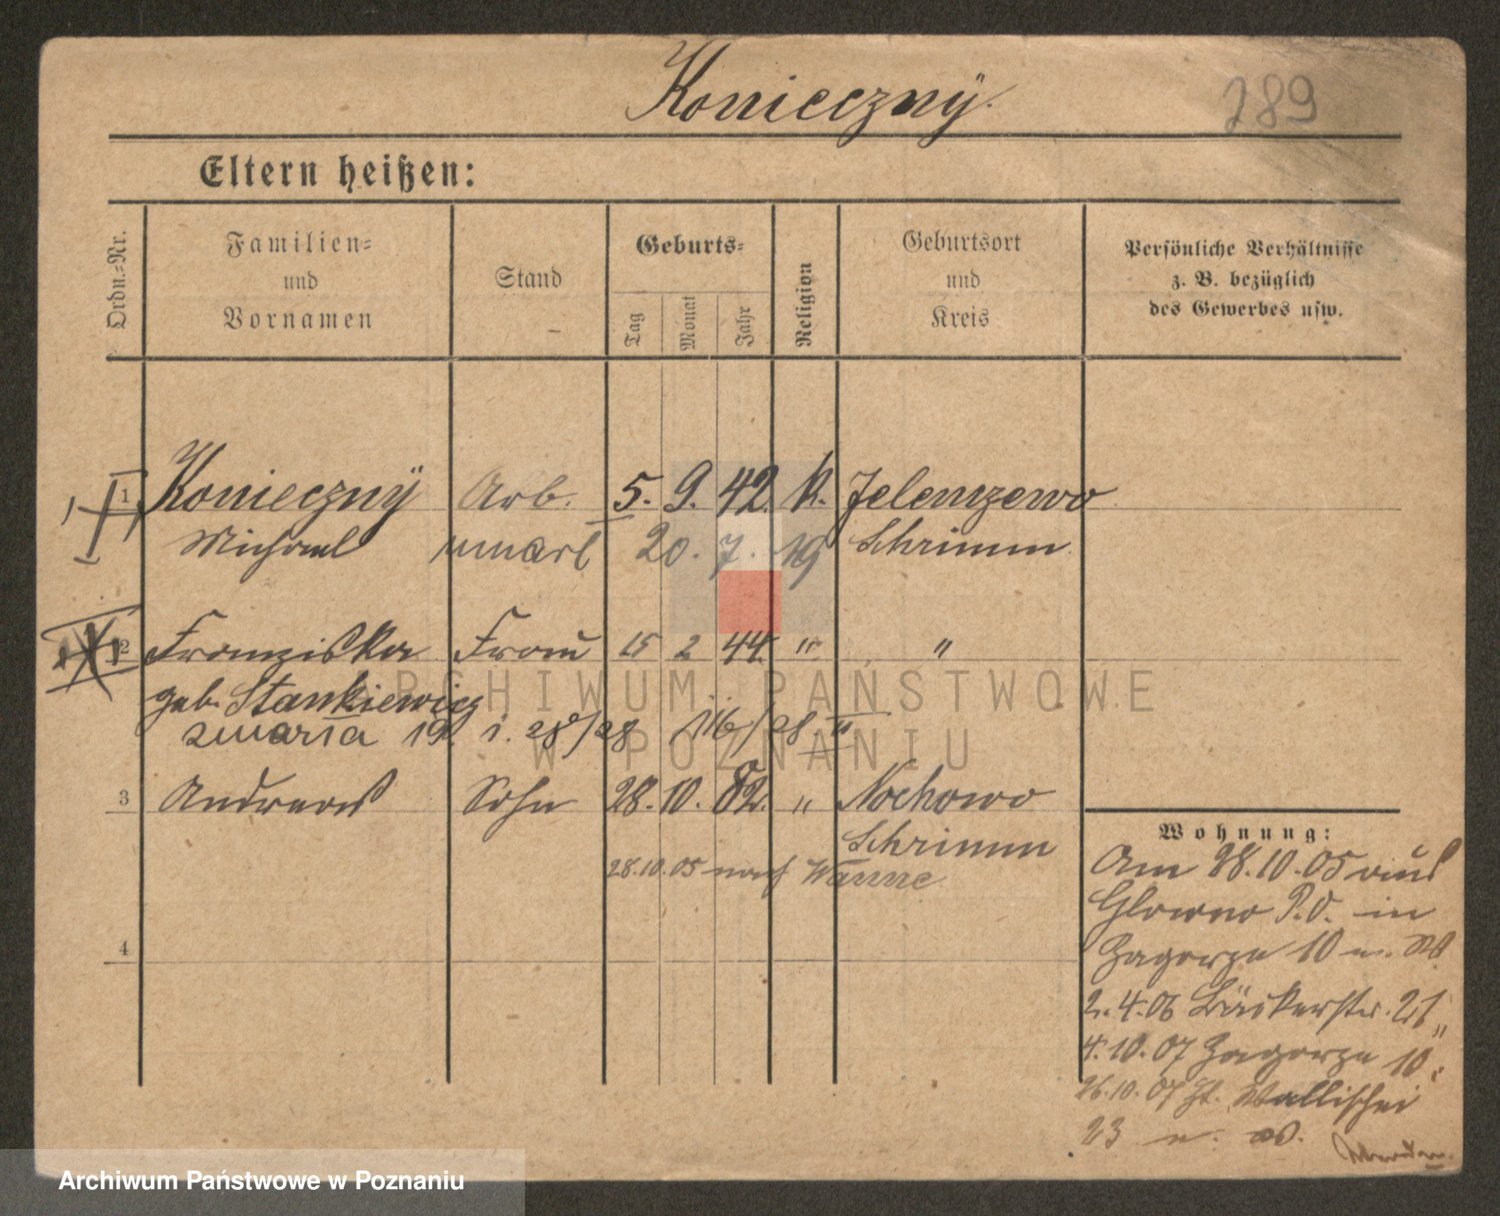 Koniecznÿ.
289
Eltern heißen:
Ordn.-Nr.
Familien-
und
Vornamen
Stand
Geburts-
Tag
Monat
Jahr
Religion
Geburtsort
und
Kreis
Persönliche Verhältnisse
z. B. bezüglich
des Gewerbes usw.
1 Koniecznÿ Arb. 5. 9. 42. k. Jelenczewo
Michael umarł 20. 7. 19 Schrimm
2 Franziska Frau 15 2 44. " "
geb. Stankiewicz
zmarła 19. 1. 28
3 Andreas Sohn 28. 10. 82. " Nochowo
Schrimm
28.10.05 nach Wanne
4
Wohnung:
Am 28.10.05 aus
Glowno P.O. in
Zagorze 10 n. W.
2.4.06 Bäckerstr. 21
4.10.07 Zagorze 10
26.10.07 Wallischei
23
ARCHIWUM PAŃSTWOWE
W POZNANIU
Archiwum Państwowe w Poznaniu